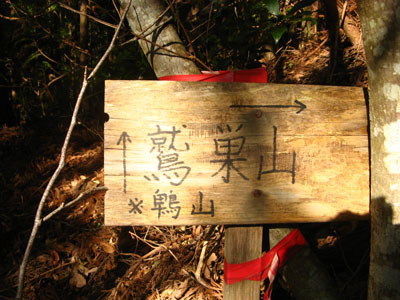 →
鷲巣山
↑
※鵯山